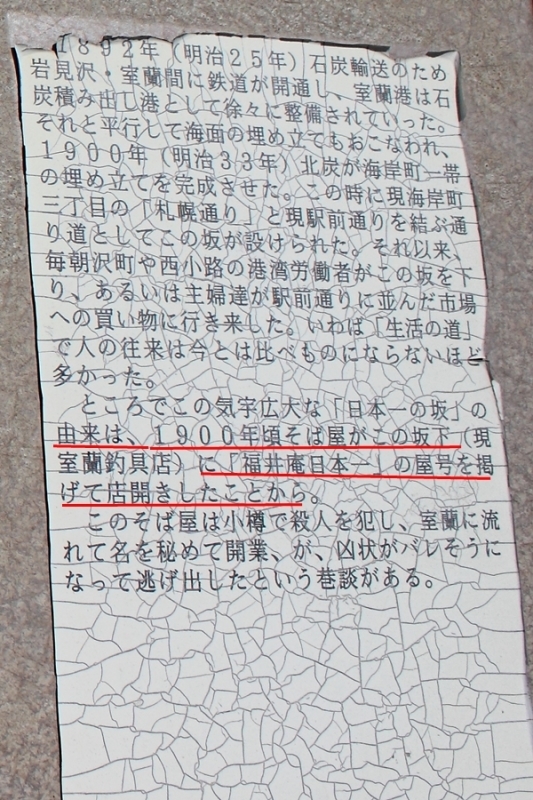 1892年(明治25年)石炭輸送のため
岩見沢・室蘭間に鉄道が開通し、室蘭港は石
炭積み出し港として徐々に整備されていった。
それと平行して海面の埋め立てもおこなわれ、
1900年(明治33年)北炭が海岸町一帯
の埋め立てを完成させた。この時に現海岸町
三丁目の「札幌通り」と現駅前通りを結ぶ通
り道としてこの坂が設けられた。それ以来、
毎朝沢町や西小路の港湾労働者がこの坂を下
り、あるいは主婦達が駅前通りに並んだ市場
への買い物に行き来した。いわば「生活の道」
で人の往来は今とは比べものにならないほど
多かった。
ところでこの気宇広大な「日本一の坂」の
由来は、1900年頃そば屋がこの坂下(現
室蘭釣具店)に「福井庵日本一」の屋号を掲
げて店開きしたことから。
このそば屋は小樽で殺人を犯し、室蘭に流
れて名を秘めて開業、が、凶状がバレそうに
なって逃げ出したという巷談がある。